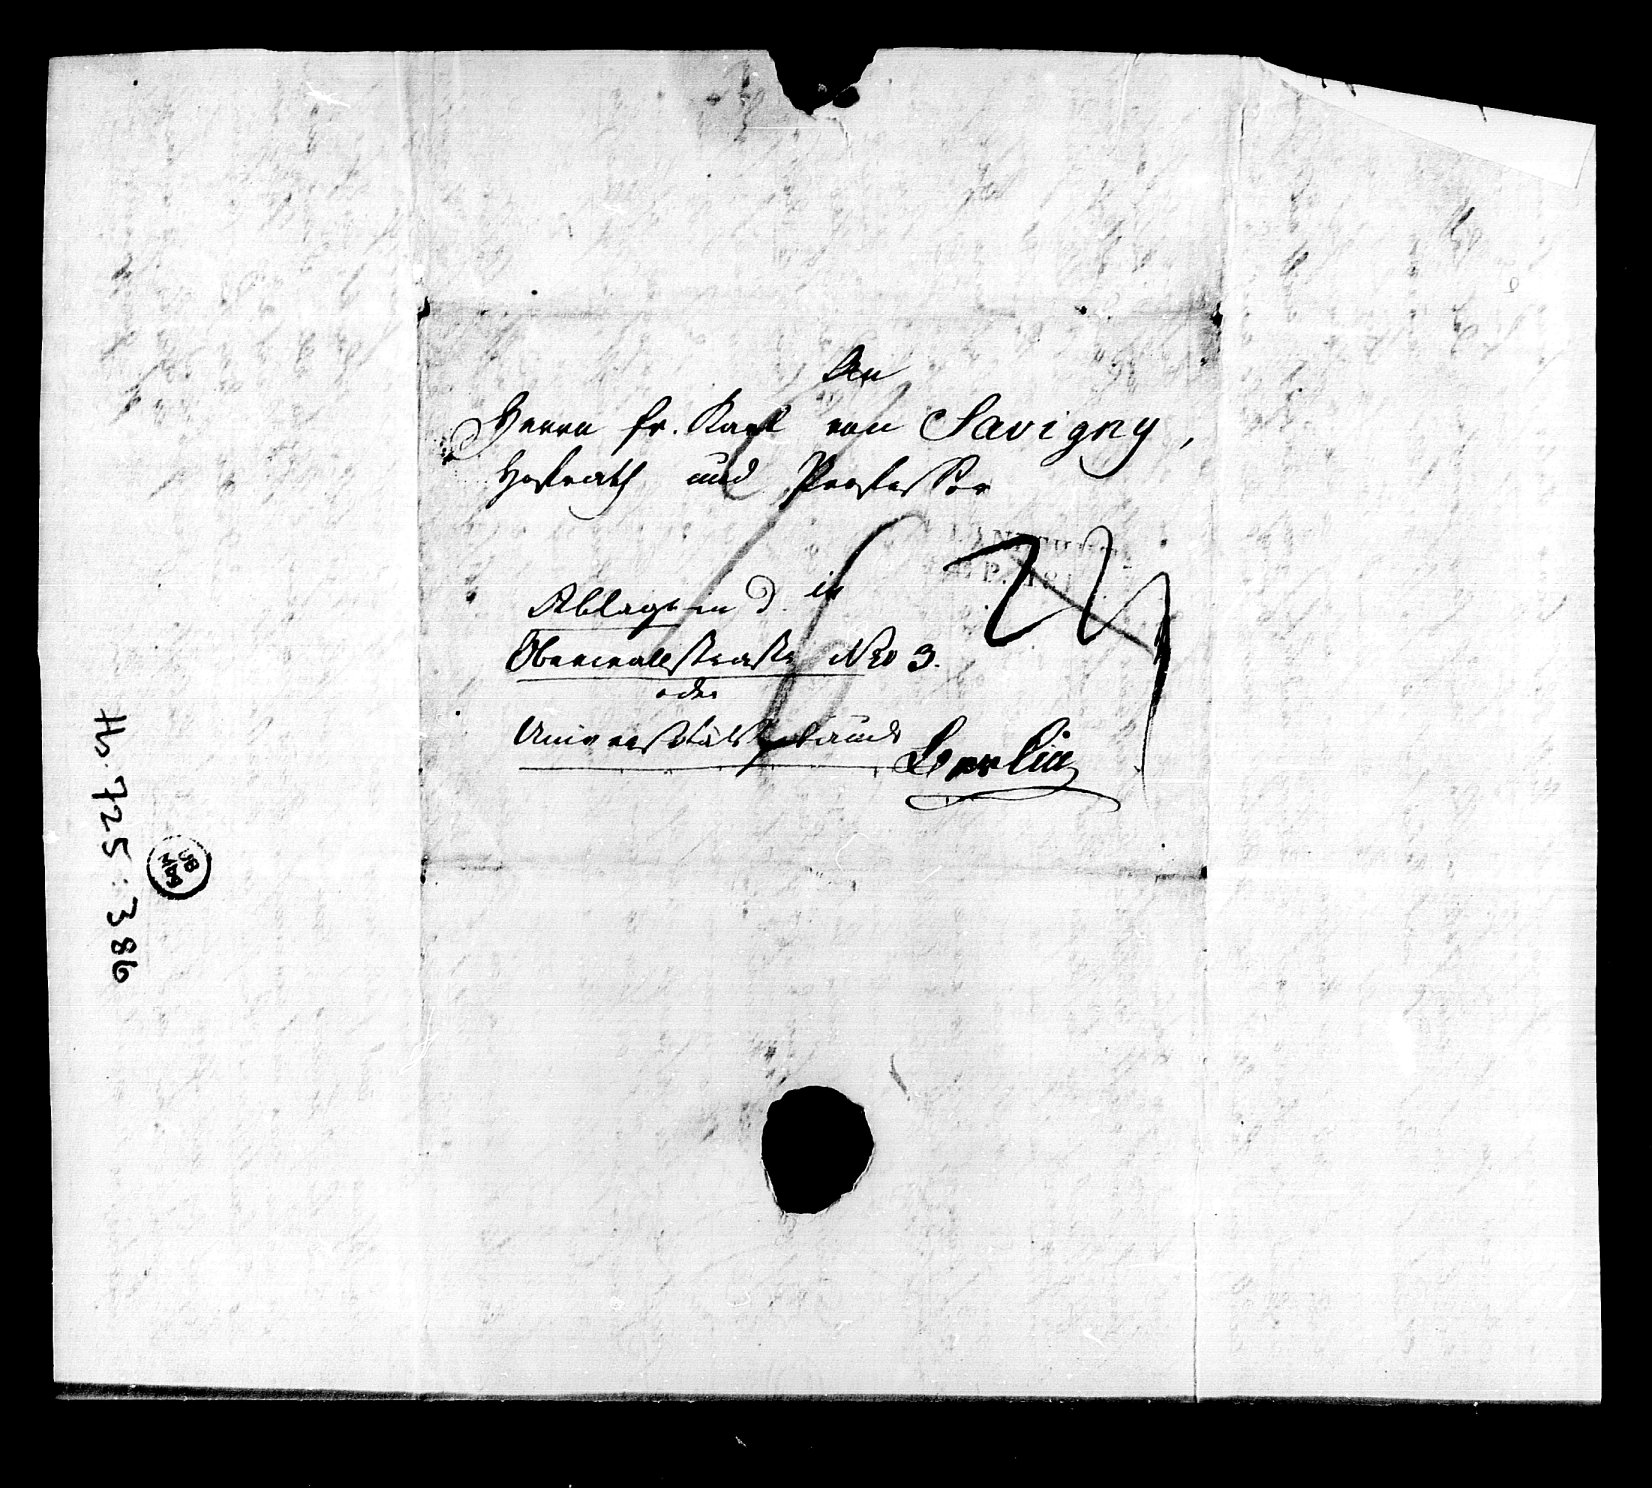 An
Herrn Fr. Karl von Savigny,
Hofrath und Professor
in
Abzugeben
Oberwallstraße Nro 3.
oder
Universitätsgebäude
Berlin
LANDSHUT
Hs. 725 : 386
UB
MAR